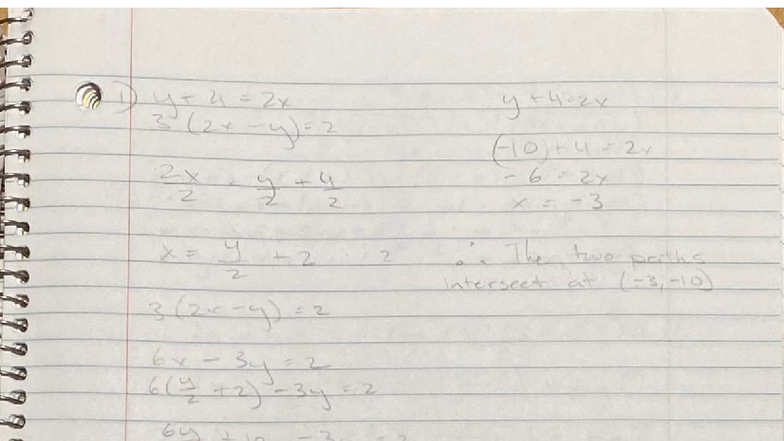 1) y + 4 = 2x
3(2x - y) = 2
2x/2 = y/2 + 4/2
x = y/2 + 2
2
3(2x - y) = 2
6x - 3y = 2
6(y/2 + 2) - 3y = 2
y + 4 = 2x
(-10) + 4 = 2x
-6 = 2x
x = -3
∴ The two paths
intersect at (-3, -10)